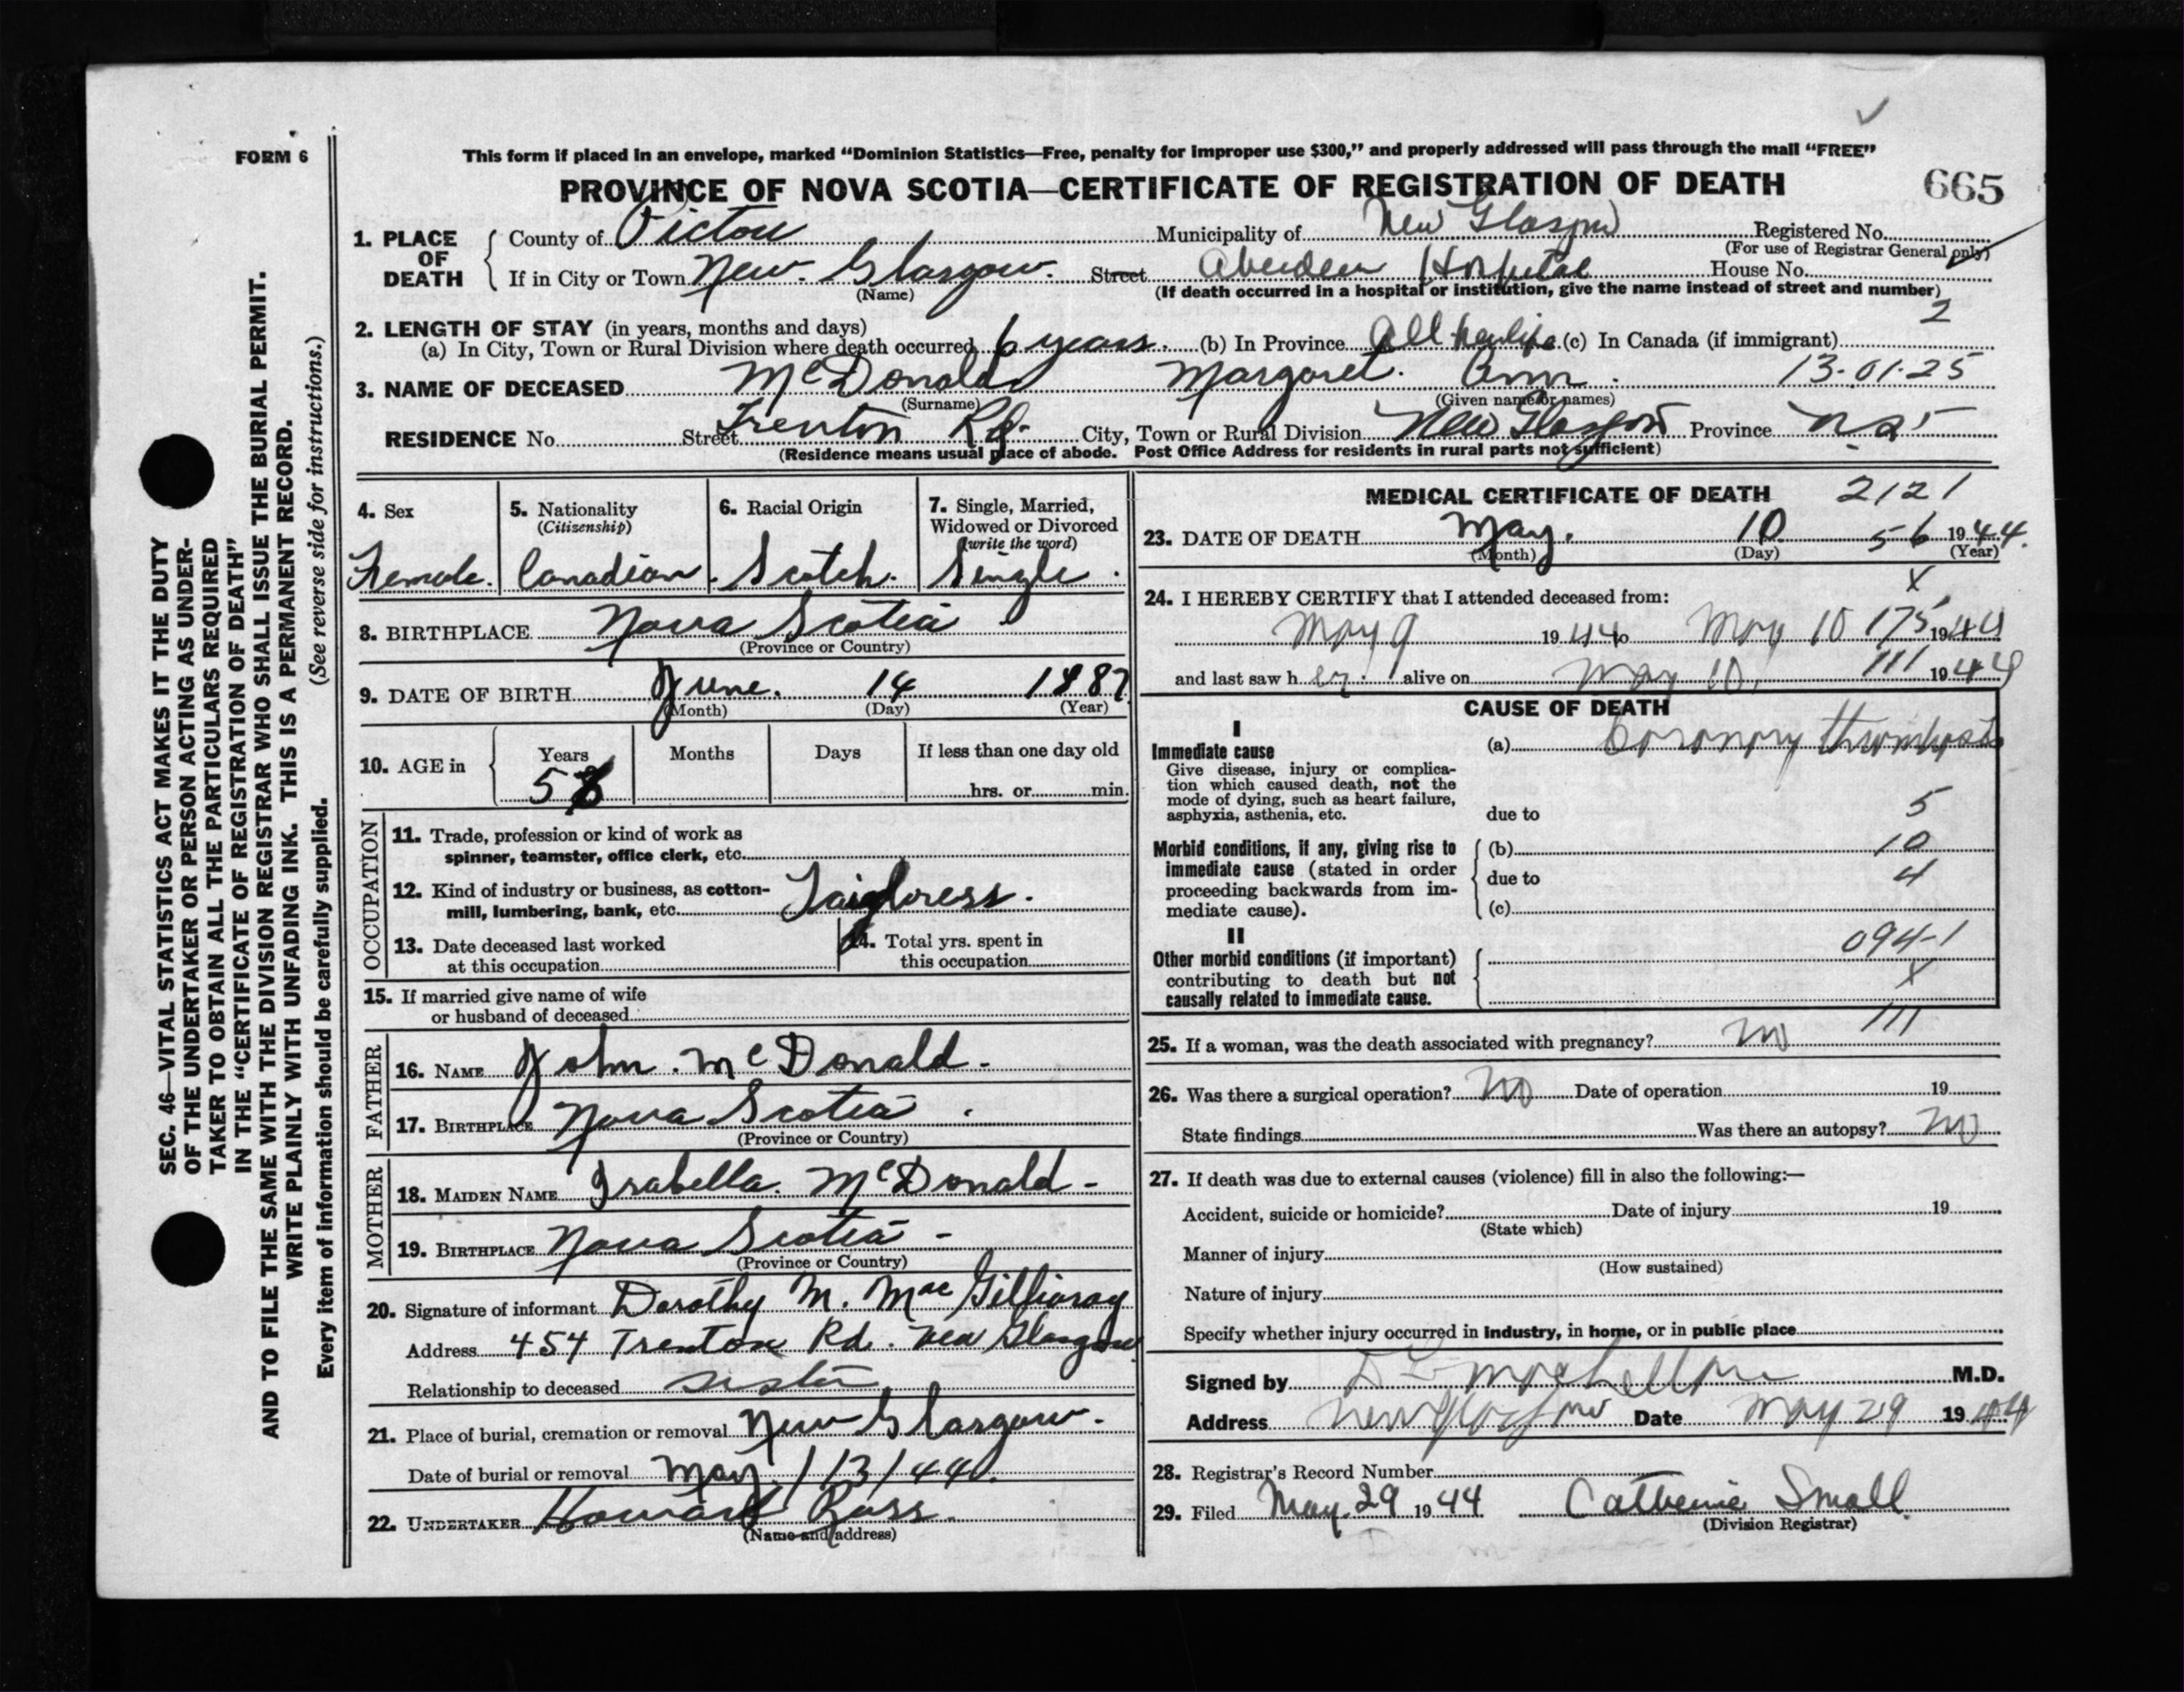 FORM 6
This form if placed in an envelope, marked “Dominion Statistics—Free, penalty for improper use $300,” and properly addressed will pass through the mail “FREE”
PROVINCE OF NOVA SCOTIA—CERTIFICATE OF REGISTRATION OF DEATH
665
1. PLACE OF DEATH
County of Pictou Municipality of New Glasgow Registered No.
(For use of Registrar General only)
If in City or Town New Glasgow. Street Aberdeen Hospital House No.
(Name) (If death occurred in a hospital or institution, give the name instead of street and number)
2
2. LENGTH OF STAY (in years, months and days)
(a) In City, Town or Rural Division where death occurred 6 years. (b) In Province All her life (c) In Canada (if immigrant)
3. NAME OF DECEASED McDonald Margaret. Ann. 13-01-25
(Surname) (Given name or names)
RESIDENCE No. Street Trenton Rd. City, Town or Rural Division New Glasgow Province N.S.
(Residence means usual place of abode. Post Office Address for residents in rural parts not sufficient)
4. Sex
Female.
5. Nationality
(Citizenship)
Canadian.
6. Racial Origin
Scotch.
7. Single, Married,
Widowed or Divorced
(write the word)
Single.
8. BIRTHPLACE Nova Scotia
(Province or Country)
9. DATE OF BIRTH June. 14 1887
(Month) (Day) (Year)
10. AGE in
Years Months Days If less than one day old
hrs. or min.
OCCUPATION
11. Trade, profession or kind of work as
spinner, teamster, office clerk, etc.
12. Kind of industry or business, as cotton-
mill, lumbering, bank, etc. Tailoress.
13. Date deceased last worked
at this occupation
14. Total yrs. spent in
this occupation
15. If married give name of wife
or husband of deceased
FATHER
16. NAME John. McDonald.
17. BIRTHPLACE Nova Scotia.
(Province or Country)
MOTHER
18. MAIDEN NAME Isabella. McDonald-
19. BIRTHPLACE Nova Scotia-
(Province or Country)
20. Signature of informant Dorothy M. MacGillivray
Address 454 Trenton Rd. New Glasgow
Relationship to deceased sister
21. Place of burial, cremation or removal New Glasgow.
Date of burial or removal May. /13/44.
22. UNDERTAKER Howard Ross.
(Name and address)
MEDICAL CERTIFICATE OF DEATH 2121
23. DATE OF DEATH May. 10. 56 1944.
(Month) (Day) (Year)
X
24. I HEREBY CERTIFY that I attended deceased from:
May 9 1944 to May 10 175 1944
and last saw her alive on May 10, 111 1944
CAUSE OF DEATH
I
Immediate cause
Give disease, injury or complica-
tion which caused death, not the
mode of dying, such as heart failure,
asphyxia, asthenia, etc.
(a) Coronary thrombosis
due to 5
Morbid conditions, if any, giving rise to
immediate cause (stated in order
proceeding backwards from im-
mediate cause).
(b) 10
due to 4
(c)
II
Other morbid conditions (if important)
contributing to death but not
causally related to immediate cause.
094-1
X
111
25. If a woman, was the death associated with pregnancy? no
26. Was there a surgical operation? no Date of operation 19
State findings Was there an autopsy? no
27. If death was due to external causes (violence) fill in also the following:—
Accident, suicide or homicide? Date of injury 19
(State which)
Manner of injury
(How sustained)
Nature of injury
Specify whether injury occurred in industry, in home, or in public place
Signed by M.D.
Address New Glasgow Date May 29 1944
28. Registrar's Record Number
29. Filed May. 29 1944 Catherine Small.
(Division Registrar)
SEC. 46—VITAL STATISTICS ACT MAKES IT THE DUTY
OF THE UNDERTAKER OR PERSON ACTING AS UNDER-
TAKER TO OBTAIN ALL THE PARTICULARS REQUIRED
IN THE “CERTIFICATE OF REGISTRATION OF DEATH”
AND TO FILE THE SAME WITH THE DIVISION REGISTRAR WHO SHALL ISSUE THE BURIAL PERMIT.
WRITE PLAINLY WITH UNFADING INK. THIS IS A PERMANENT RECORD.
Every item of information should be carefully supplied. (See reverse side for instructions.)